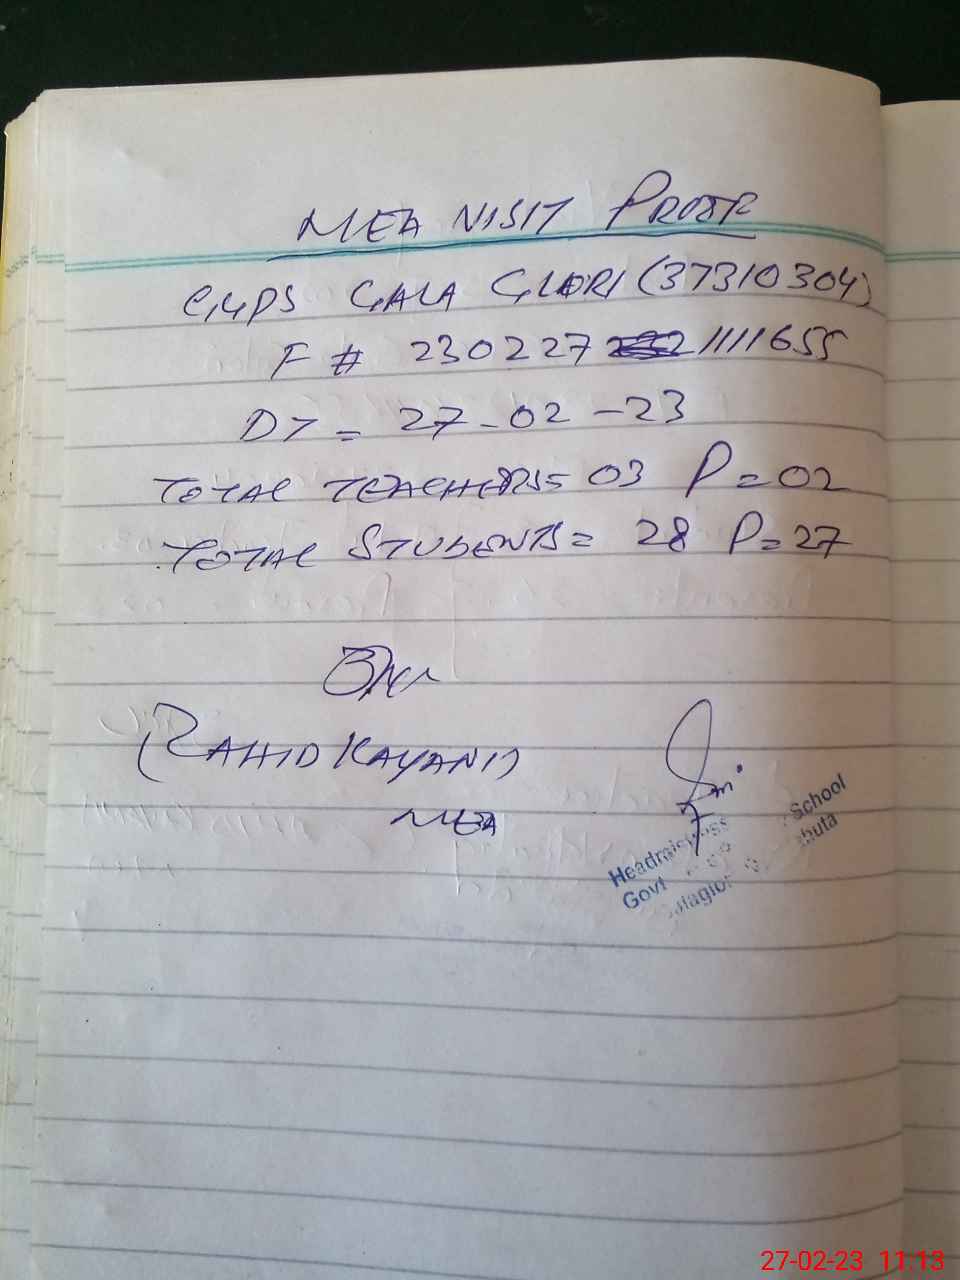 MEA VISIT PROOF
GGPS GALA GLORI (37310304)
F # 230227 1111655
DT = 27-02-23
TOTAL TEACHERS= 03 P=02
TOTAL STUDENTS= 28 P=27
(ZAHID KAYANI)
MEA
Headmistress School
Govt
27-02-23 11:13